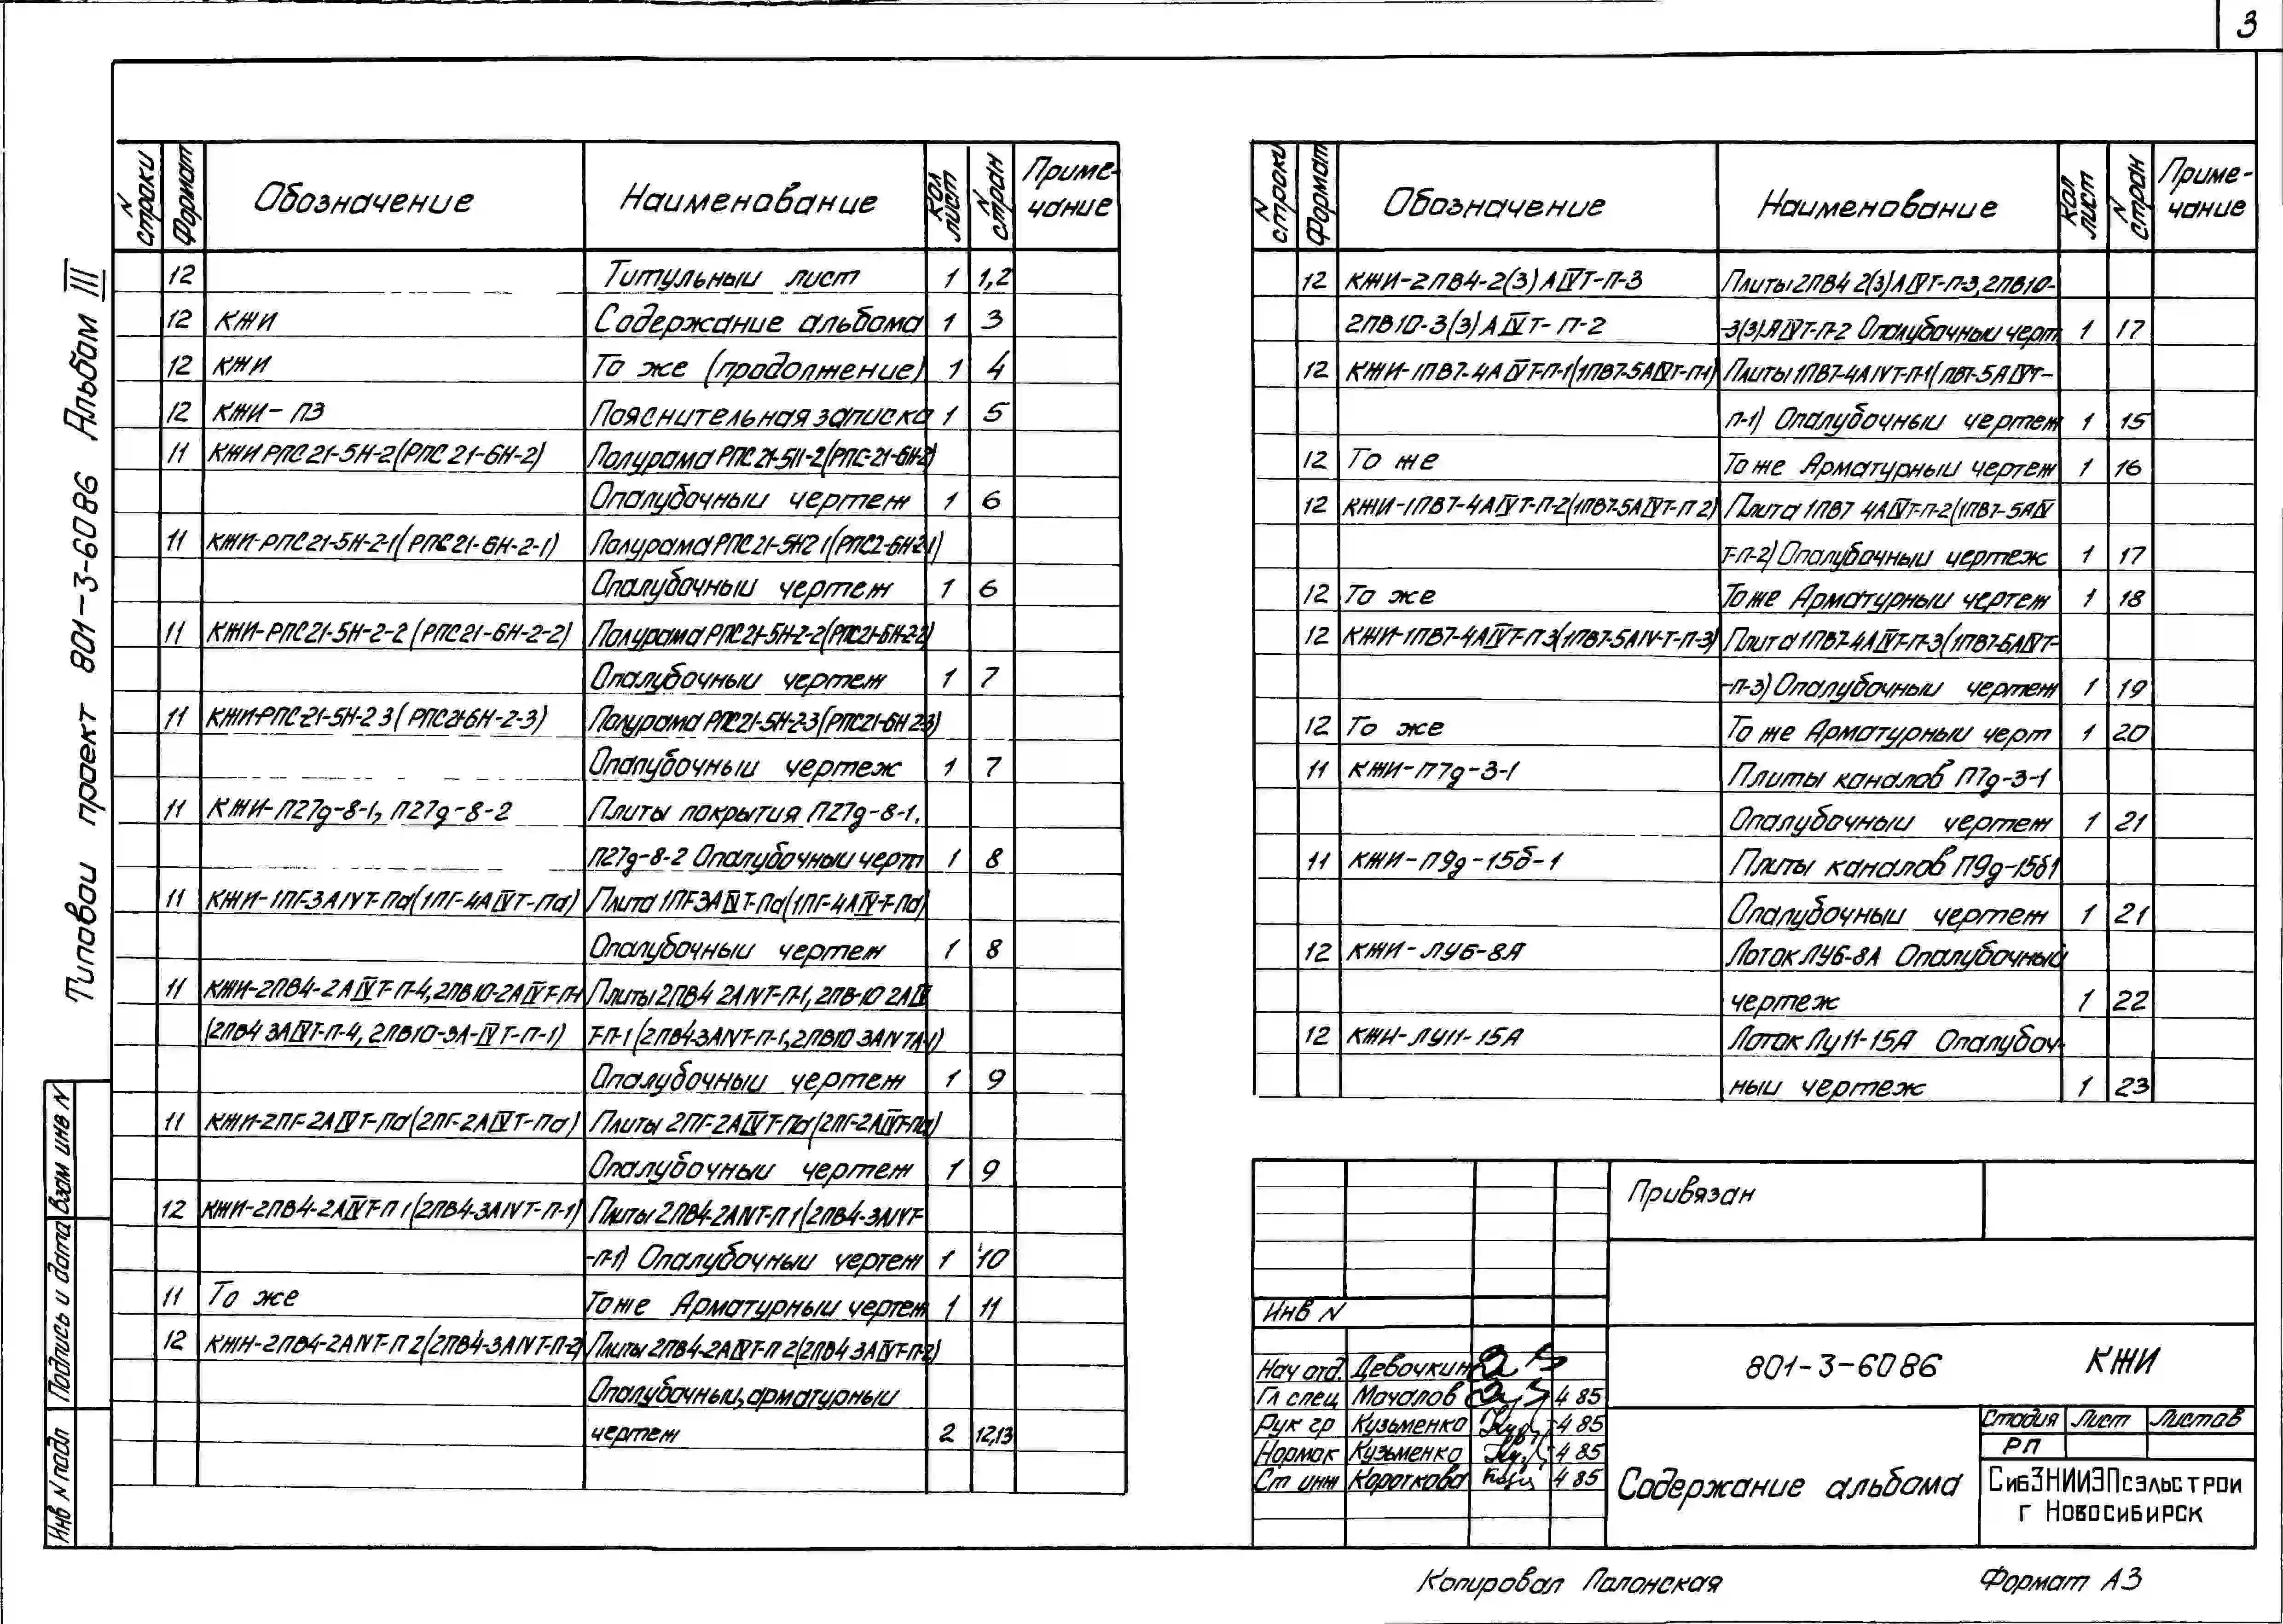 3
Типовой проект 801-3-6086 Альбом III
N строки Формат Обозначение Наименование Кол лист N стран Приме-чание
12 Титульный лист 1 1,2
12 КЖИ Содержание альбома 1 3
12 КЖИ То же (продолжение) 1 4
12 КЖИ-ПЗ Пояснительная записка 1 5
11 КЖИ РПС21-5Н-2(РПС 21-6Н-2) Полурама РПС 21-5Н-2(РПС-21-6Н-2)
Опалубочный чертеж 1 6
11 КЖИ-РПС21-5Н-2-1(РПС21-6Н-2-1) Полурама РПС21-5Н2 1(РПС2-6Н-2-1)
Опалубочный чертеж 1 6
11 КЖИ-РПС21-5Н-2-2(РПС21-6Н-2-2) Полурама РПС21-5Н-2-2(РПС21-6Н-2-2)
Опалубочный чертеж 1 7
11 КЖИ-РПС-21-5Н-2 3(РПС21-6Н-2-3) Полурама РПС21-5Н-2-3(РПС21-6Н 2-3)
Опалубочный чертеж 1 7
11 КЖИ-П27д-8-1, П27д-8-2 Плиты покрытия П27д-8-1,
П27д-8-2 Опалубочный черт 1 8
11 КЖИ-1ПГ-3АIVТ-Па(1ПГ-4АIVТ-Па) Плита 1ПГ-3АIVТ-Па(1ПГ-4АIV-Т-Па)
Опалубочный чертеж 1 8
11 КЖИ-2ПВ4-2АIVТ-П-4,2ПВ10-2АIVТ-П-1 Плиты 2ПВ4 2АIVТ-П-1, 2ПВ-10 2АIV
(2ПВ4 3АIVТ-П-4, 2ПВ10-3А-IVТ-П-1) Т-П-1(2ПВ4-3АIVТ-П-1,2ПВ10 3АIV7А-1)
Опалубочный чертеж 1 9
11 КЖИ-2ПГ-2АIVТ-Па(2ПГ-2АIVТ-Па) Плиты 2ПГ-2АIVТ-Па(2ПГ-2АIVТ-Па)
Опалубочный чертеж 1 9
12 КЖИ-2ПВ4-2АIVТ-П 1(2ПВ4-3АIVТ-П-1) Плиты 2ПВ4-2АIVТ-П 1(2ПВ4-3АIVТ-
-П-1) Опалубочный чертеж 1 10
11 То же То же Арматурный чертеж 1 11
12 КЖИ-2ПВ4-2АIVТ-П 2(2ПВ4-3АIVТ-П-2) Плиты 2ПВ4-2АIVТ-П 2(2ПВ4 3АIVТ-П-2)
Опалубочный, арматурный
чертеж 2 12,13
N строки Формат Обозначение Наименование Кол лист N стран Приме-чание
12 КЖИ-2ПВ4-2(3)АIVТ-П-3 Плиты 2ПВ4 2(3)АIVТ-П-3,2ПВ10-
2ПВ10-3(3)АIVТ-П-2 -3(3)АIVТ-П-2 Опалубочный черт 1 17
12 КЖИ-1ПВ7-4АIVТ-П-1(1ПВ7-5АIVТ-П-1) Плиты 1ПВ7-4АIVТ-П-1(ПВ7-5АIVТ-
П-1) Опалубочный чертеж 1 15
12 То же То же Арматурный чертеж 1 16
12 КЖИ-1ПВ7-4АIVТ-П-2(1ПВ7-5АIVТ-П 2) Плита 1ПВ7 4АIVТ-П-2(1ПВ7-5АIV
Т-П-2) Опалубочный чертеж 1 17
12 То же То же Арматурный чертеж 1 18
12 КЖИ-1ПВ7-4АIVТ-П 3(1ПВ7-5АIV-Т-П-3) Плита 1ПВ7-4АIVТ-П-3(1ПВ7-5АIVТ-
-П-3) Опалубочный чертеж 1 19
12 То же То же Арматурный черт 1 20
11 КЖИ-П7д-3-1 Плиты каналов П7д-3-1
Опалубочный чертеж 1 21
11 КЖИ-П9д-15б-1 Плиты каналов П9д-15б1
Опалубочный чертеж 1 21
12 КЖИ-ЛУ6-8А Лоток ЛУ6-8А Опалубочный
чертеж 1 22
12 КЖИ-ЛУ11-15А Лоток Лу11-15А Опалубоч-
ный чертеж 1 23
Привязан
Инв N
Нач отд. Девочкин
Гл спец Мочалов 4 85
Рук гр Кузьменко 4 85
Нормок Кузьменко 4 85
Ст инж Короткова 4 85
801-3-6086 КЖИ
Содержание альбома
Стадия Лист Листов
РП
СибЗНИИЭПсэльстрой
г Новосибирск
Взам инв N
Подпись и дата
Инв N подл
Копировал Полонская Формат А3